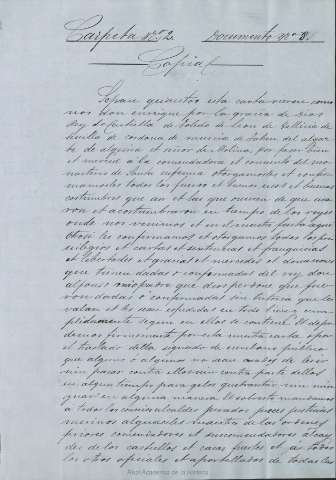 Carpeta Nº 2. Documento nº 3
Copia
Sepan quantos esta carta vieren como
nos don enrique por la gracia de dios
Rey de Castilla de Toledo de Leon de Gallicia de
Sevilla de cordova de murcia de Jahen del algar
be de algecira et señor de Molina, por faser bien
et merced a la comendadora et convento del mo
nasterio de Santa eufemia otorgamosles et confir
mamosles todos los fueros et buenos usos et buenas
costumbres que an et las que ovieron de que usa
ron et acostumbraron en tiempo de los reyes
onde nos venimos et en el nuestro fasta aquí
Otrosi les confirmamos et otorgamos todos los pri
vilegios et cartas et sentencias et franquezas
et libertades et gracias et mercedes et donaciones
que tienen dadas o confirmadas del rey don
alfonso nuestro padre que dios perdone que fue
ron dadas o confirmadas sin tutoria que les
valan et les sean guardadas en todo bien et cum
plidamente segun en ellos se contiene. Et defen
demos firmemente por esta nuestra carta o por
el traslado della signado de escribano publico
que alguno o algunos no sean osados de les ir
nin pasar contra ellas nin contra parte dellas
en algun tiempo para gelas quebrantar nin min
guar en alguna manera. Et sobresto mandamos
a todos los concejos alcaldes jurados jueces justicias
merinos alguaciles maestres de las ordenes
priores comendadores et suscomendadores alcay
des de los castillos et casas fuertes et a todos
los otros oficiales et aportellados de todas las
Real Academia de la Historia